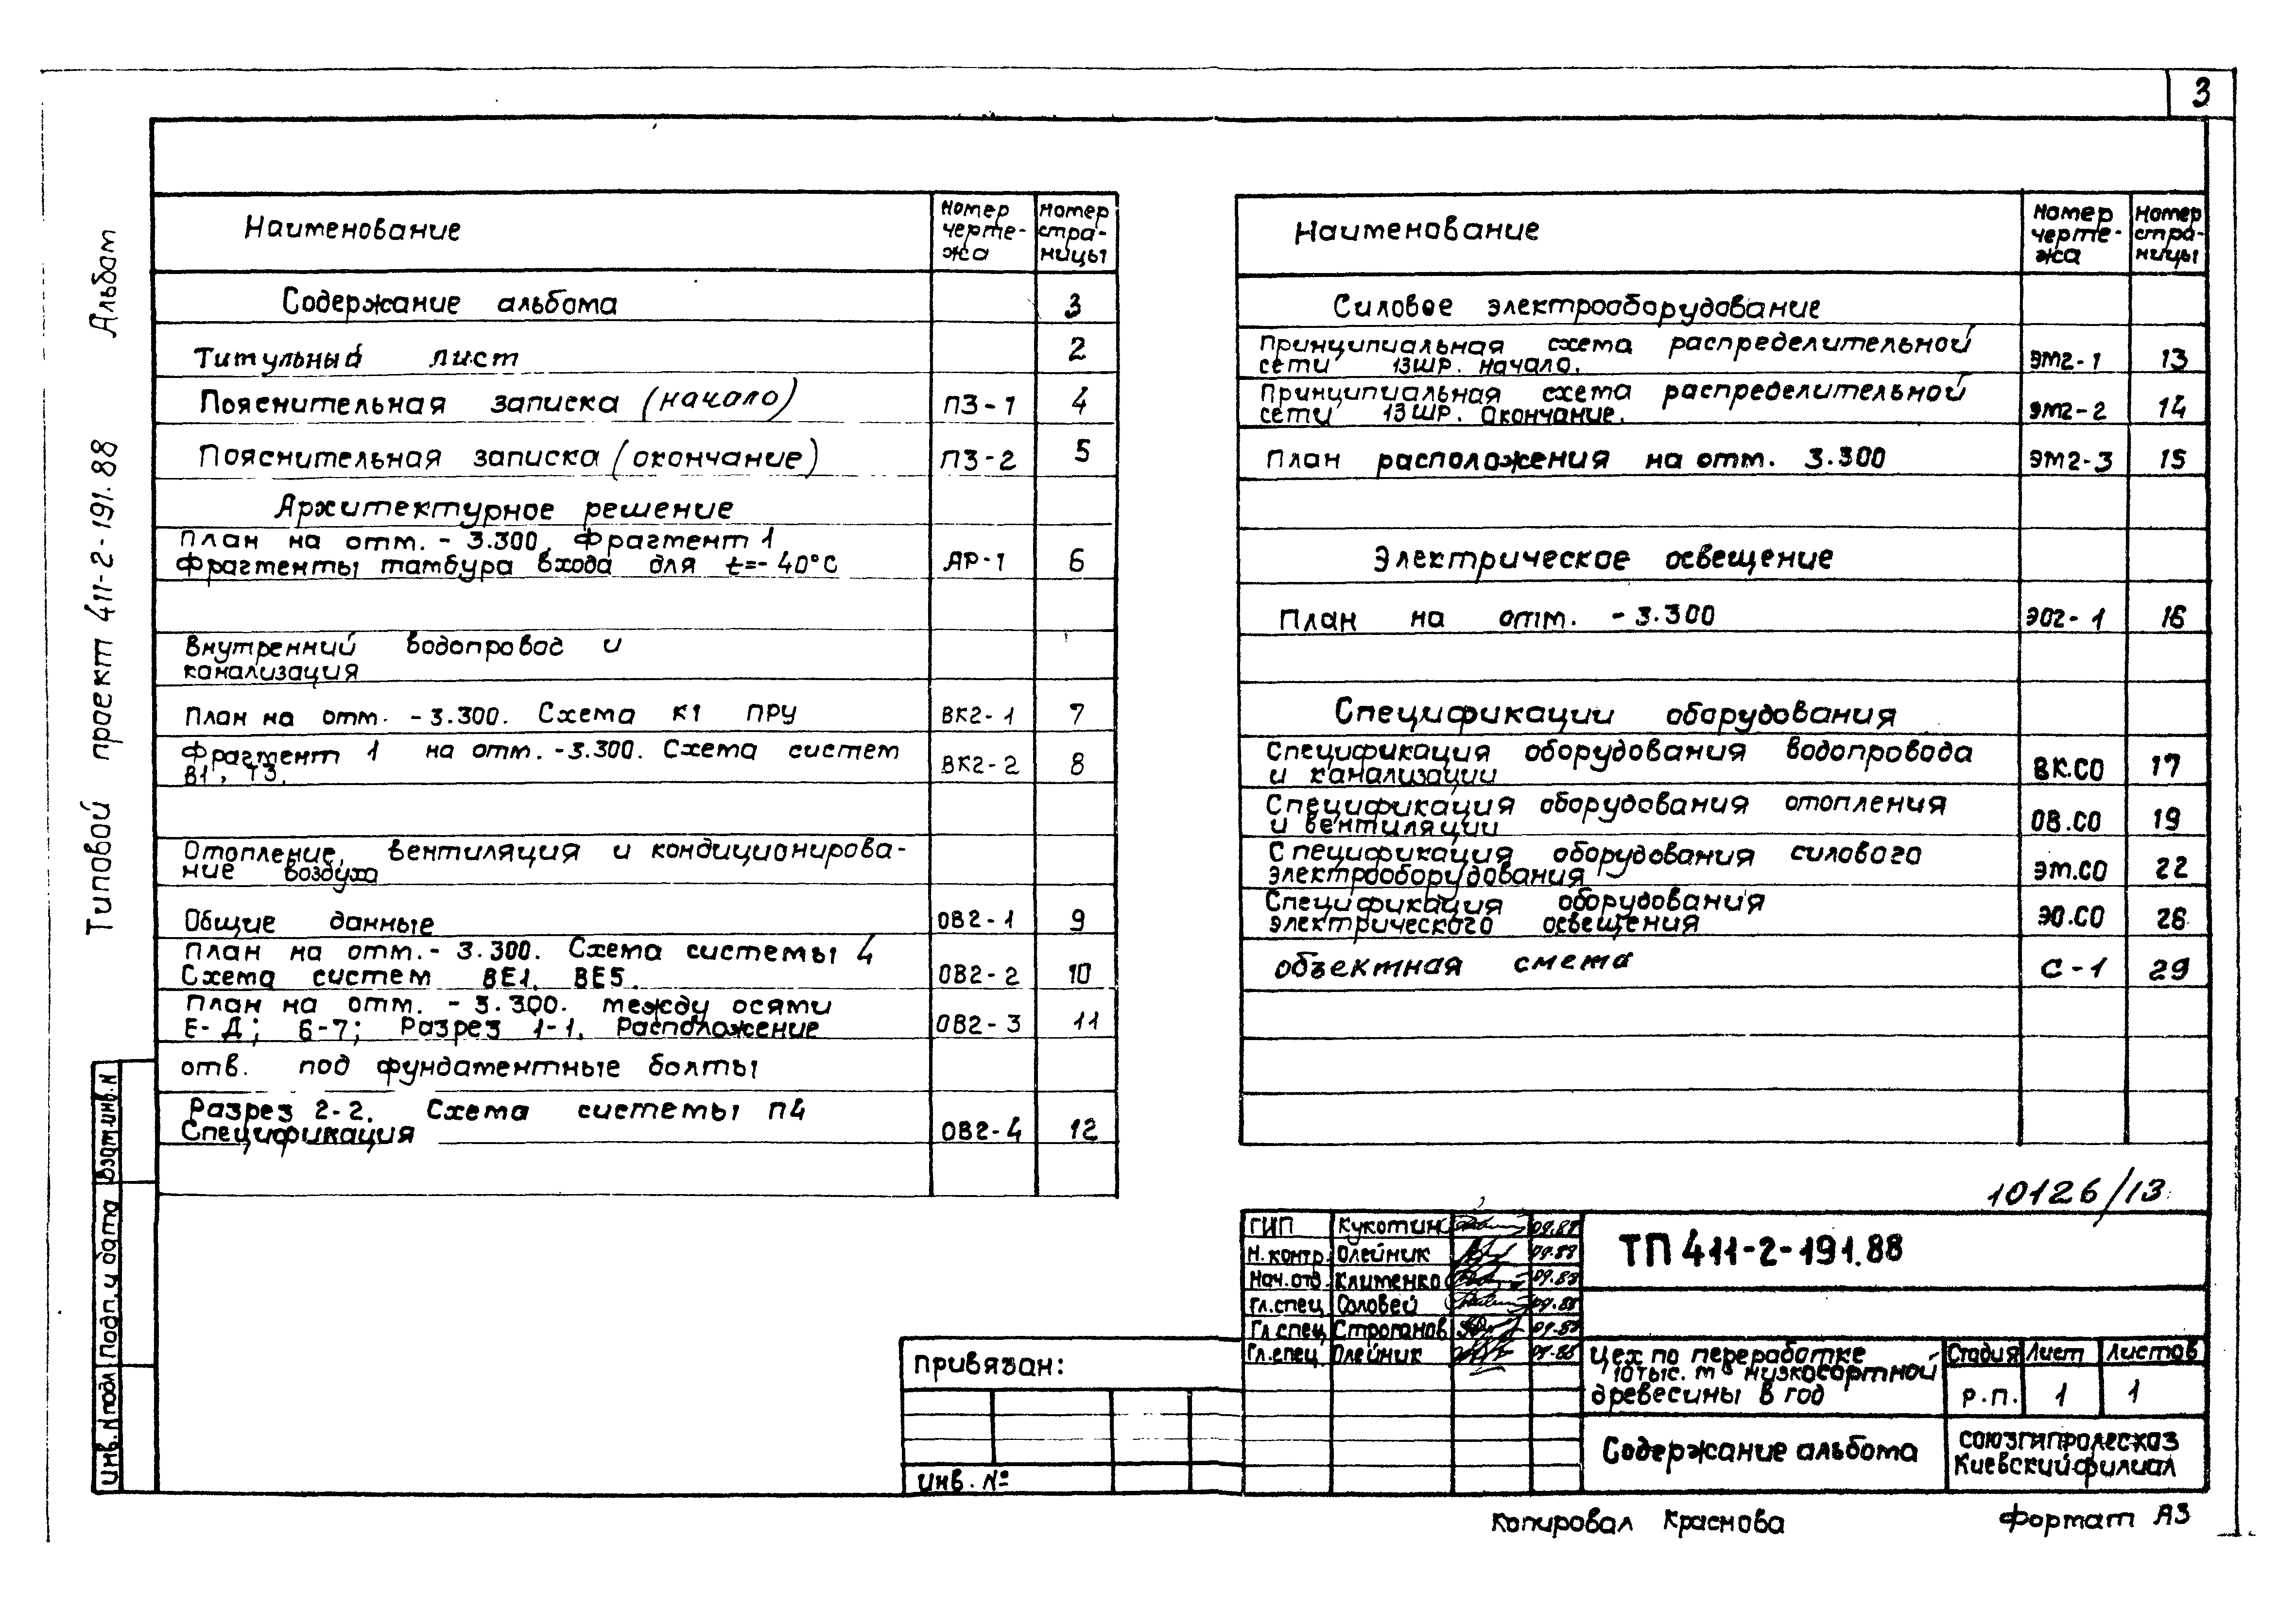 3
Типовой проект 411-2-191.88 Альбом
Наименование
Номер чертежа
Номер страницы
Содержание альбома 3
Титульный лист 2
Пояснительная записка (начало) ПЗ-1 4
Пояснительная записка (окончание) ПЗ-2 5
Архитектурное решение
План на отм. - 3.300, Фрагмент 1
Фрагменты тамбура входа для t=-40°С АР-1 6
Внутренний водопровод и
канализация
План на отм. -3.300. Схема К1 ПРУ ВК2-1 7
Фрагмент 1 на отм. -3.300. Схема систем
В1, Т3. ВК2-2 8
Отопление, вентиляция и кондиционирова-
ние воздуха
Общие данные ОВ2-1 9
План на отм.- 3.300. Схема системы 4
Схема систем ВЕ1, ВЕ5. ОВ2-2 10
План на отм. - 3.300. между осями
Е-Д; 6-7; Разрез 1-1. Расположение ОВ2-3 11
отв. под фундаментные болты
Разрез 2-2. Схема системы П4
Спецификация ОВ2-4 12
Наименование
Номер
черте-
жа
Номер
стра-
ницы
Силовое электрооборудование
Принципиальная схема распределительной
сети 13ШР. Начало. ЭМ2-1 13
Принципиальная схема распределительной
сети 13ШР. Окончание. ЭМ2-2 14
План расположения на отм. 3.300 ЭМ2-3 15
Электрическое освещение
План на отм. - 3.300 ЭО2-1 16
Спецификации оборудования
Спецификация оборудования водопровода
и канализации ВК.СО 17
Спецификация оборудования отопления
и вентиляции ОВ.СО 19
Спецификация оборудования силового
электрооборудования ЭМ.СО 22
Спецификация оборудования
электрического освещения ЭО.СО 26
Объектная смета С-1 29
10126/13
ГИП Кукотин 09.88
Н.контр. Олейник 09.88
Нач.отд. Клименко 09.88
Гл.спец. Соловей 09.88
Гл.спец. Строганов 09.88
Гл.спец. Олейник 09.88
ТП 411-2-191.88
Цех по переработке
10тыс. м³ низкосортной
древесины в год
Стадия Лист Листов
Р.П. 1 1
Содержание альбома
СОЮЗГИПРОЛЕСХОЗ
Киевский филиал
Привязан:
Инв. №
Взам.инв.N
Подп. и дата
Инв.N подл
Копировал Краснова
Формат А3